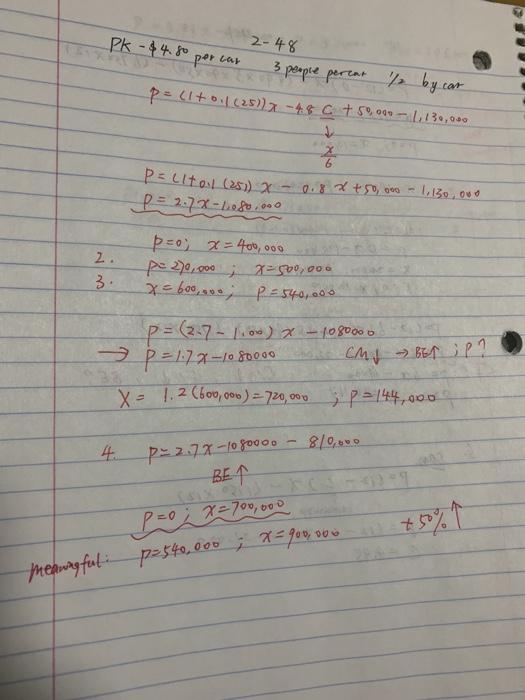 2-48
PK - $4.80 per car
3 people per car 1/2 by car
P = (1+0.1(25))x - 4.8 C + 50,000 - 1,130,000
↓
x/6
P = (1+0.1(25))x - 0.8x + 50,000 - 1,130,000
P = 2.7x - 1,080,000
P=0; x=400,000
2. P=270,000; x=500,000
3. x=600,000; P=540,000
P = (2.7 - 1.00)x - 1080000
→ P = 1.7x - 1080000 CM↓ → BE↑ ; P?
X = 1.2(600,000) = 720,000 ; P=144,000
4. P = 2.7x - 1080000 - 810,000
BE↑
P=0; x=700,000
meaningful: P=540,000 ; x=900,000 +50%↑